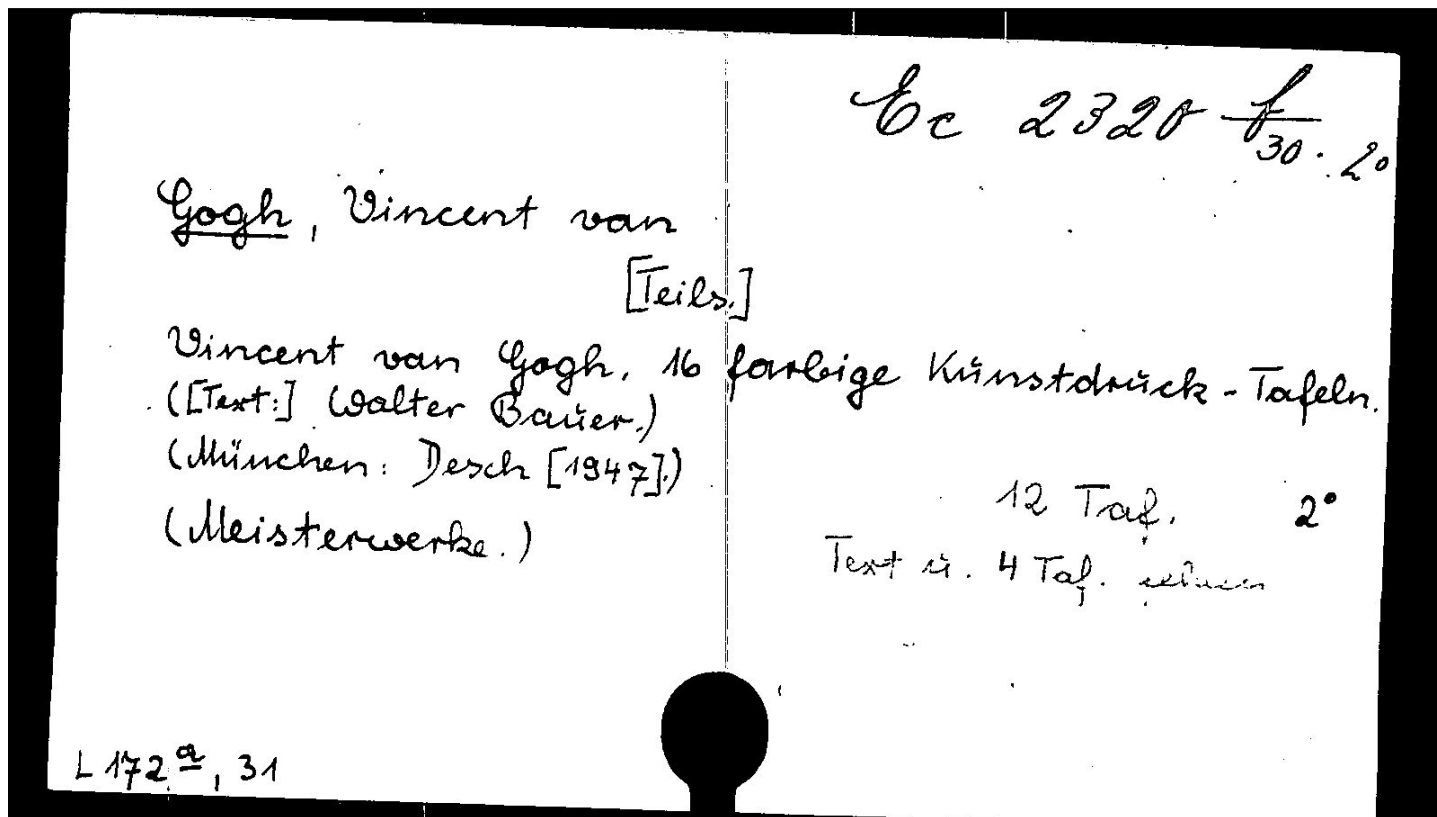 Ec 2320 f/30. 2°
Gogh, Vincent van
[Teils.]
Vincent van Gogh. 16 farbige Kunstdruck-Tafeln.
([Text:] Walter Bauer.)
(München: Desch [1947].)
(Meisterwerke.)
12 Taf. 2°
Text u. 4 Taf.
L 172 a, 31